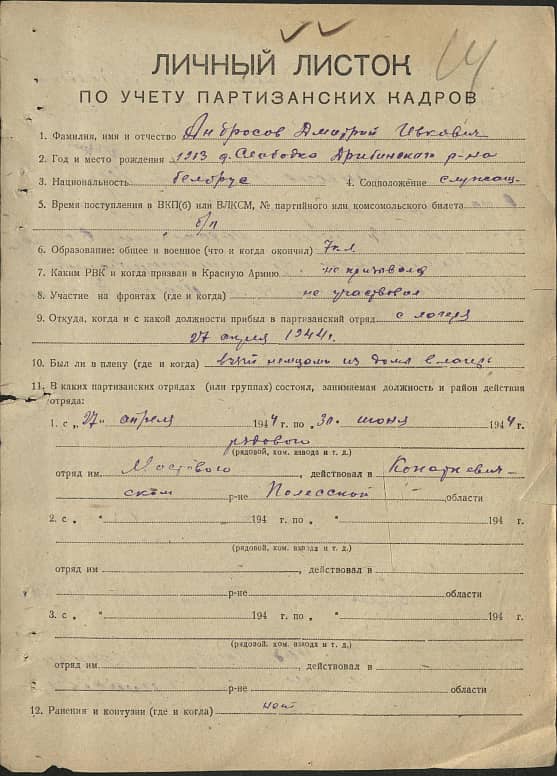 14
ЛИЧНЫЙ ЛИСТОК
ПО УЧЕТУ ПАРТИЗАНСКИХ КАДРОВ
1. Фамилия, имя и отчество Амбросов Дмитрий
2. Год и место рождения 1913 д. Слободка Дрибинского р-на
3. Национальность белорус 4. Соцположение служащ.
5. Время поступления в ВКП(б) или ВЛКСМ, № партийного или комсомольского билета
б/п
6. Образование: общее и военное (что и когда окончил) 7 кл
7. Каким РВК и когда призван в Красную Армию не призывался
8. Участие на фронтах (где и когда) не участвовал
9. Откуда, когда и с какой должности прибыл в партизанский отряд с лагеря
27 апреля 1944 г.
10. Был ли в плену (где и когда) взят немцами из дома в лагерь
11. В каких партизанских отрядах (или группах) состоял, занимаемая должность и район действия
отряда:
1. с „27" апреля 1944 г. по „30" июня 1944 г.
рядового
(рядовой, ком. взвода и т. д.)
отряд им. , действовал в Копаткевич-
ском р-не Полесской области
2. с „ " 194 г. по „ " 194 г.
(рядовой, ком. взвода и т. д.)
отряд им , действовал в
р-не области
3. с „ " 194 г. по „ " 194 г.
(рядовой, ком. взвода и т. д.)
отряд им. , действовал в
р-не области
12. Ранения и контузии (где и когда) нет